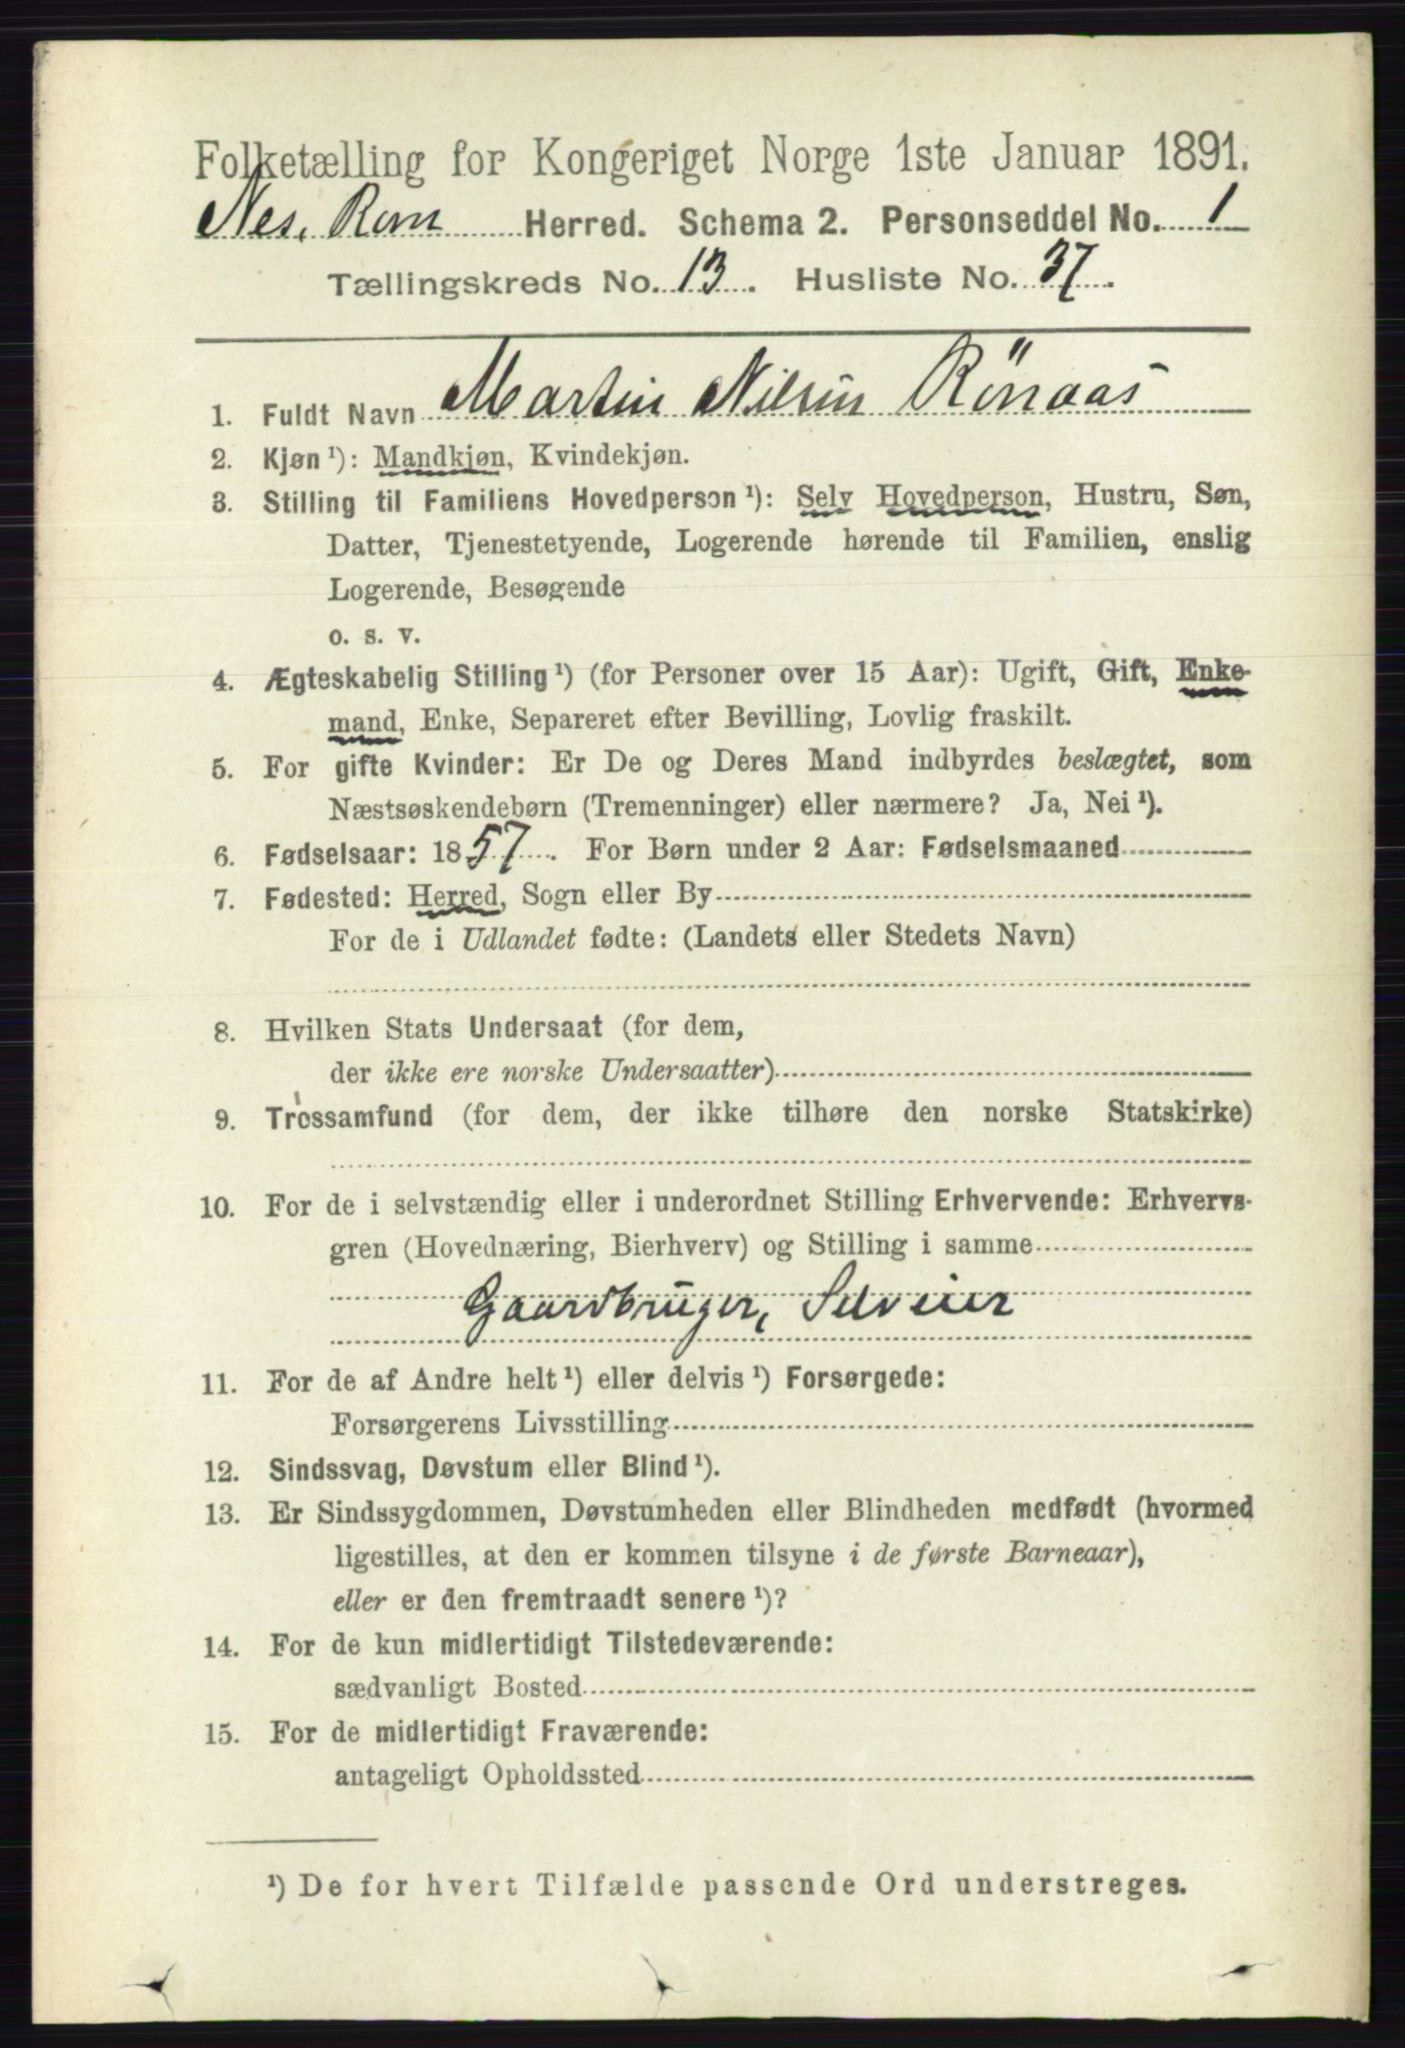 Folketælling for Kongeriget Norge 1ste Januar 1891.
Nes, Rom Herred. Schema 2. Personseddel No. 1
Tællingskreds No. 13. Husliste No. 37.
1. Fuldt Navn Martin Nilsen Rönaas
2. Kjøn ¹): Mandkjøn, Kvindekjøn.
3. Stilling til Familiens Hovedperson ¹): Selv Hovedperson, Hustru, Søn,
Datter, Tjenestetyende, Logerende hørende til Familien, enslig
Logerende, Besøgende
o. s. v.
4. Ægteskabelig Stilling ¹) (for Personer over 15 Aar): Ugift, Gift, Enke-
mand, Enke, Separeret efter Bevilling, Lovlig fraskilt.
5. For gifte Kvinder: Er De og Deres Mand indbyrdes beslægtet, som
Næstsøskendebørn (Tremenninger) eller nærmere? Ja, Nei ¹).
6. Fødselsaar: 1857. For Børn under 2 Aar: Fødselsmaaned
7. Fødested: Herred, Sogn eller By
For de i Udlandet fødte: (Landets eller Stedets Navn)
8. Hvilken Stats Undersaat (for dem,
der ikke ere norske Undersaatter)
9. Trossamfund (for dem, der ikke tilhøre den norske Statskirke)
10. For de i selvstændig eller i underordnet Stilling Erhvervende: Erhvervs-
gren (Hovednæring, Bierhverv) og Stilling i samme
Gaardbruger, Selveier
11. For de af Andre helt ¹) eller delvis ¹) Forsørgede:
Forsørgerens Livsstilling
12. Sindssvag, Døvstum eller Blind ¹).
13. Er Sindssygdommen, Døvstumheden eller Blindheden medfødt (hvormed
ligestilles, at den er kommen tilsyne i de første Barneaar),
eller er den fremtraadt senere ¹)?
14. For de kun midlertidigt Tilstedeværende:
sædvanligt Bosted
15. For de midlertidigt Fraværende:
antageligt Opholdssted
¹) De for hvert Tilfælde passende Ord understreges.